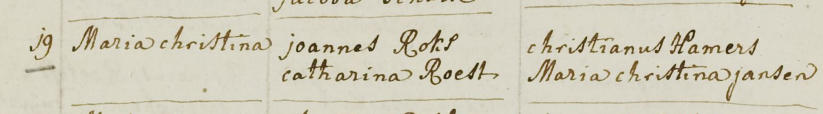 19 Maria christina joannes Roks christianus Hamers
catharina Roest Maria christina jansen